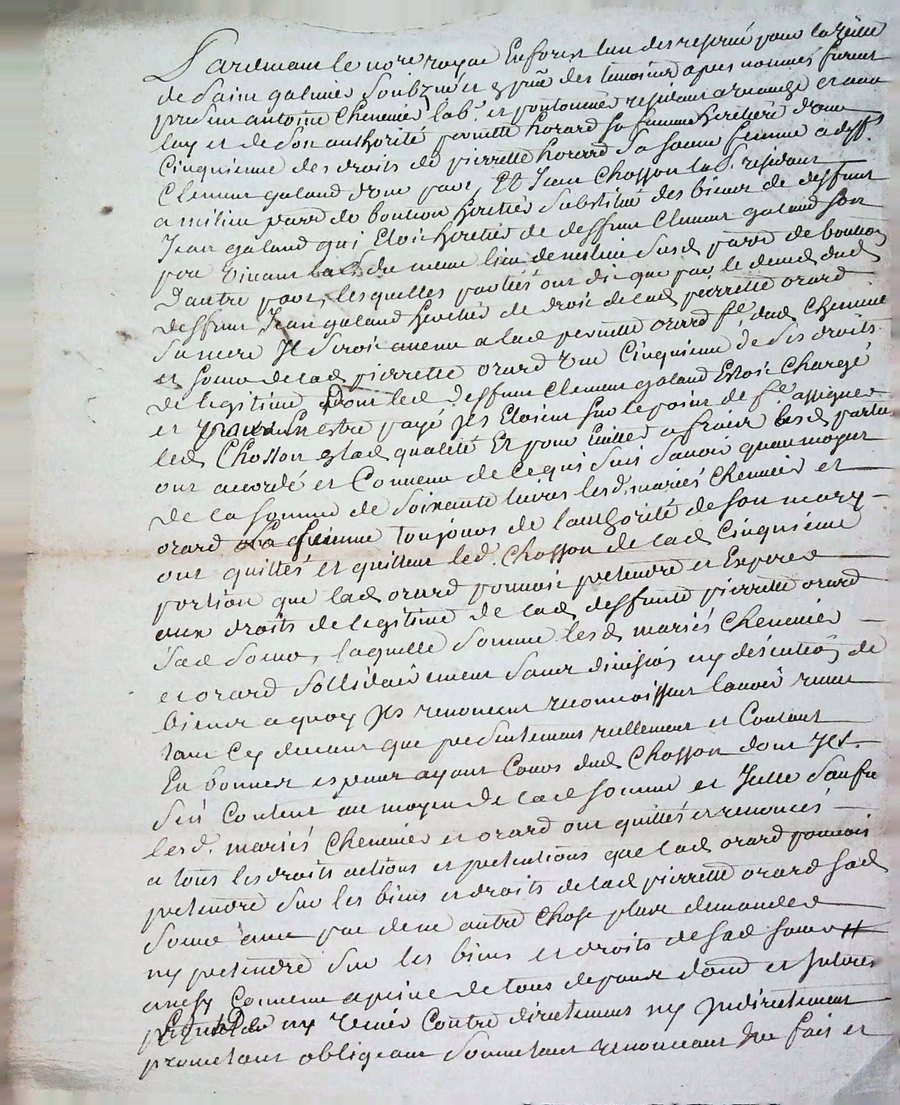 Pardevant le no.re royal En forest l'un des reservé pour la ville
de Saint galmier Soubzné et p.nt des temoins apres nommés furent
present antoine Chenevier lab.r et resident et avec
luy et de Son authorité pernette horard Sa femme heritiere d'une
Cinquieme des droits de pierrette horard Sa Soeur femme a deff.
Clement galand d'une part, Et Jean Chosson lab. resident
a mitieu paroisse de bouteon heritier Substitué des biens de deffunt
Jean galand qui Etoit heritier de deffunt Clement galand Son
pere vivant lab. du meme lieu de Susd. de bouteon
D'autre part, lesquelles parties ont dit que par le deces dud.
deffunt Jean galand heritier de droit de lad. pierrette orard
Sa mere Il Seroit avenu a lad. pernette orard f.e dud. Chenevier
et Soeur de lad. pierrette orard une Cinquieme de Ses droits
de legitime Dont led. deffunt Clement galand Estoit Chargé
et pour en estre payé Ils Etoient Sur le point de f.e assigner
led. Chosson lad. qualité Et pour Eviter a frais les d. parties
ont accordé et Convenu de Ce qui Suit Savoir quau moyen
de la Somme de Soixante livres lesd. mariés Chenevier et
orard la femme toujours de l'authorité de Son mary
ont quittés et quittent led. Chosson de lad. Cinquieme
portion que lad. orard pouvoit pretendre et Esperer
aux droits de legitime de lad. deffunte pierrette orard
Sad. Soeur, laquelle Somme lesd. mariés Chenevier
et orard Sollidairement Sans division ny discution de
biens a quoy Ils renoncent reconnoissent l'avoir receu
tant Cy devant que presentement reellement et Contant
En bonnes especes ayant Cours dud. Chosson dont Ils
Sen Contentent au moyen de lad. Somme et Icelle
lesd. mariés Chenevier et orard ont quittés et renoncés
a tous les droits actions et pretentions que lad. orard pouvoit
pretendre Sur les biens et droits de lad. pierrette orard Sad.
Soeur avec pac de ne autre Chose plus demander
ny pretendre Sur les biens et droits de Sad. Soeur
ainsy Convenu a peine de tous depens et
ny venir Contre directement ny Indirectement
promettant obligeant Soumettant renonceant fait et